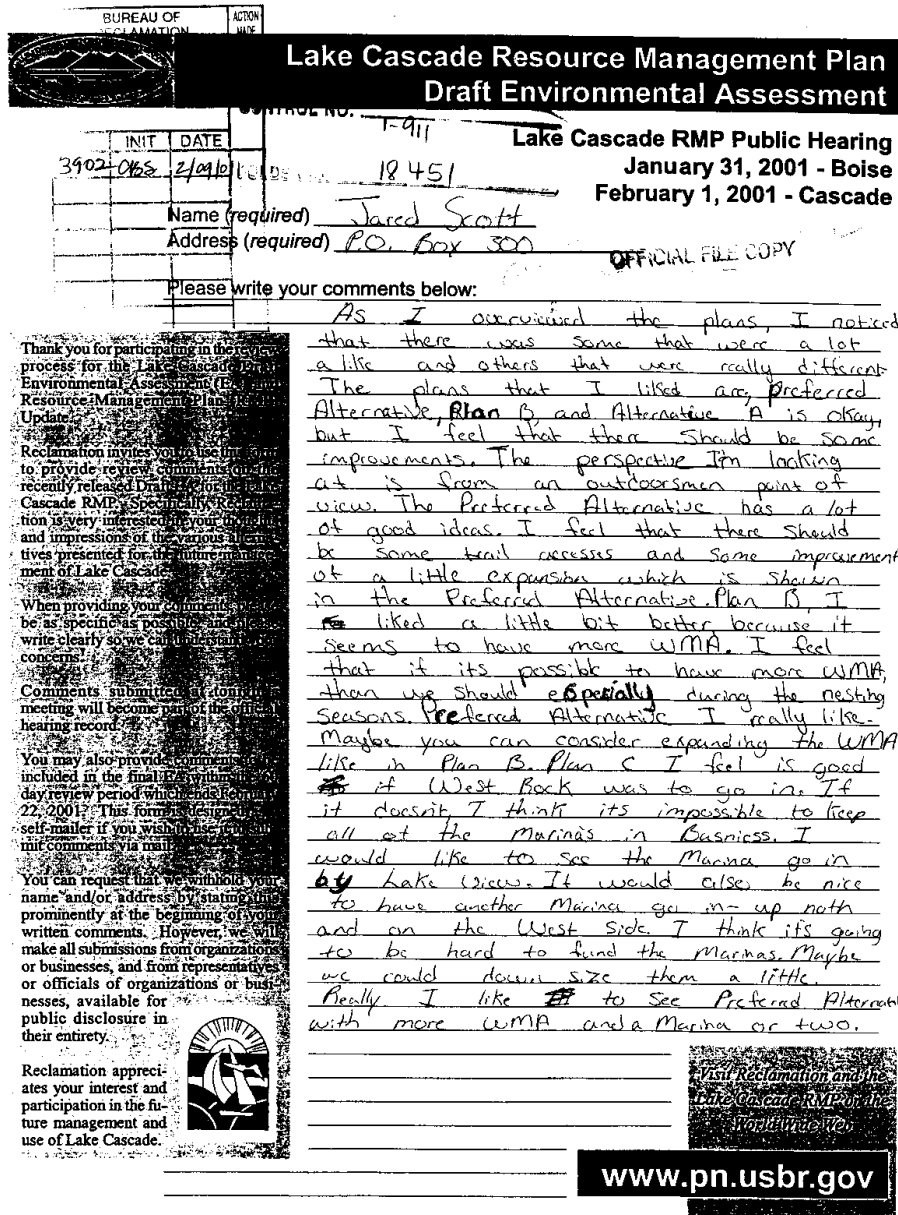 BUREAU OF
RECLAMATION
ACTION
Lake Cascade Resource Management Plan
Draft Environmental Assessment
CONTROL NO.
T-911
INIT DATE
3902
18451
Lake Cascade RMP Public Hearing
January 31, 2001 - Boise
February 1, 2001 - Cascade
Name (required) Jared Scott
Address (required) P.O. Box 300
OFFICIAL FILE COPY
Please write your comments below:
As I overviewed the plans, I noticed
that there was some that were a lot
a like and others that were really different
The plans that I liked are, preferred
Alternative, Plan B, and Alternative A is okay,
but I feel that there should be some
improvements. The perspective I'm looking
at is from an outdoorsmen point of
view. The Preferred Alternative has a lot
of good ideas. I feel that there should
be some trail accesses and some improvement
of a little expansion which is shown
in the Preferred Alternative. Plan B, I
liked a little bit better because it
seems to have more WMA. I feel
that if its possible to have more WMA,
than we should especially during the nesting
seasons. Preferred Alternative I really like.
Maybe you can consider expanding the WMA
like in Plan B. Plan C I feel is good
if West Rock was to go in. If
it doesn't, I think its impossible to keep
all of the Marinas in Busniess. I
would like to see the Marina go in
by Lake View. It would also be nice
to have another Marina go in- up noth
and on the West Side. I think it's going
to be hard to fund the Marinas. Maybe
we could down size them a little.
Really I like to see Preferred Alternati
with more WMA and a Marina or two.
Thank you for participating in the review
process for the Lake Cascade Draft
Environmental Assessment (EA) and
Resource Management Plan
Update.
Reclamation invites you to use this form
to provide review comments on the
recently released Draft EA for the Lake
Cascade RMP. Specifically, Reclama-
tion is very interested in your thoughts
and impressions of the various alterna-
tives presented for the future manage-
ment of Lake Cascade.
When providing your comments, please
be as specific as possible, and please
write clearly so we can understand your
concerns.
Comments submitted at tonight's
meeting will become part of the official
hearing record.
You may also provide comments to be
included in the final EA within the
day review period which ends February
22, 2001. This form is designed as a
self-mailer if you wish to use it to sub-
mit comments via mail.
You can request that we withhold your
name and/or address by stating this
prominently at the beginning of your
written comments. However, we will
make all submissions from organizations
or businesses, and from representatives
or officials of organizations or busi-
nesses, available for
public disclosure in
their entirety.
Reclamation appreci-
ates your interest and
participation in the fu-
ture management and
use of Lake Cascade.
Visit Reclamation and the
Lake Cascade RMP on the
World Wide Web
www.pn.usbr.gov